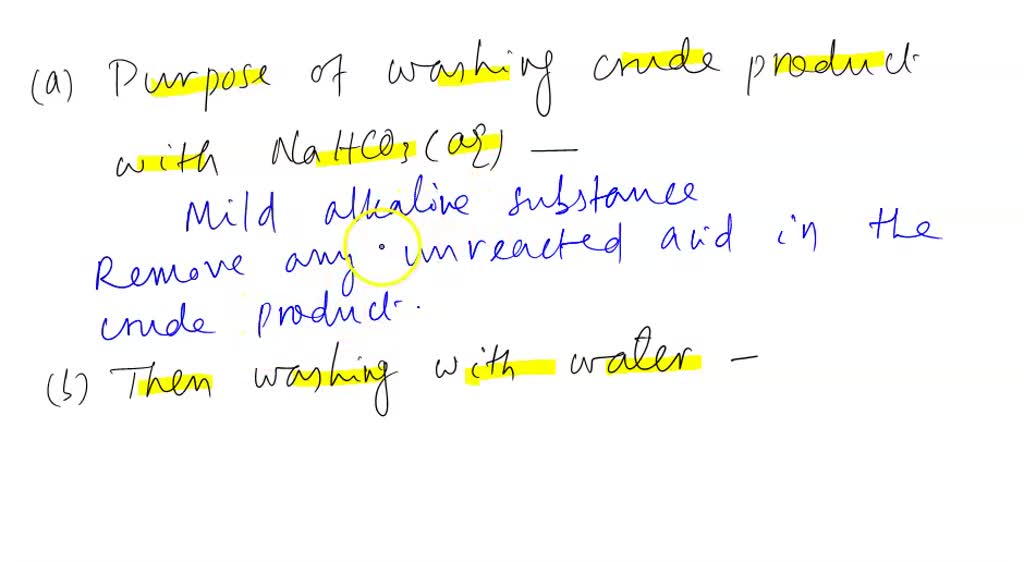 (a) Purpose of washing crude product
with NaHCO3 (aq) —
Mild alkaline substance
Remove any unreacted acid in the
crude product.
(b) Then washing with water —